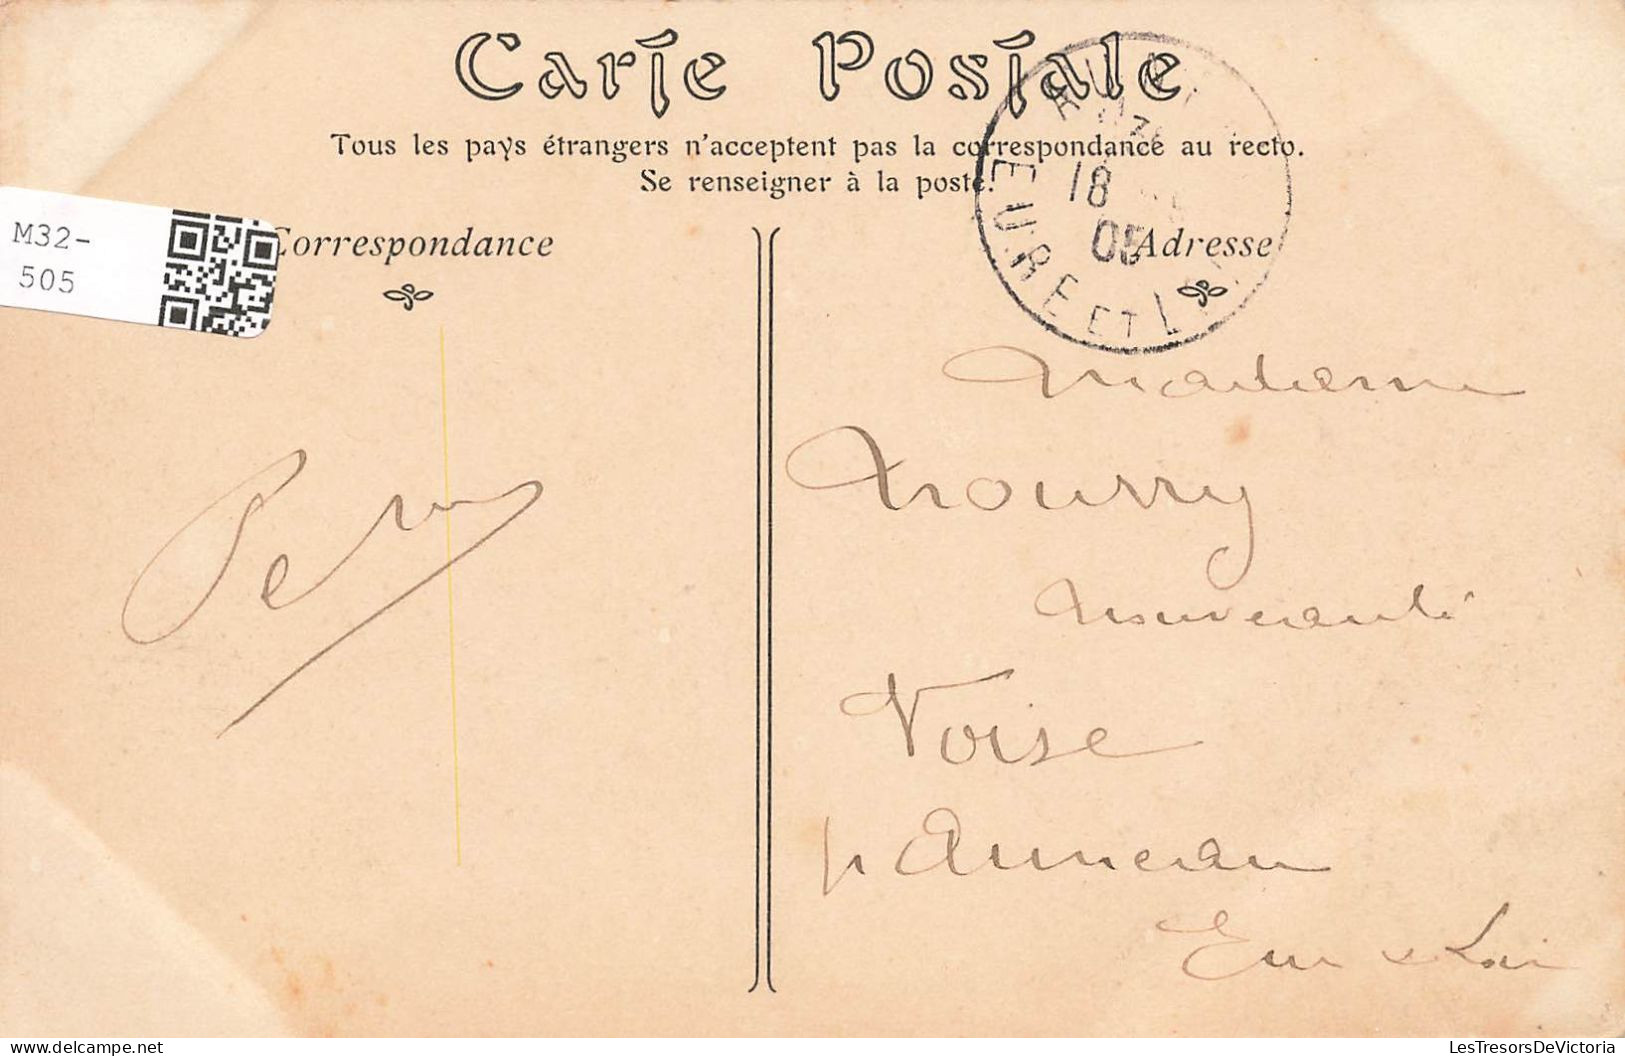 Carte Postale
Tous les pays étrangers n'acceptent pas la correspondance au recto.
Se renseigner à la poste.
M32-
505
Correspondance
Adresse
18
05
EURE ET L
Madame
Nourry
Nouveauté
Voise
pr Auneau
Eure & Loir
LesTresorsDeVictoria